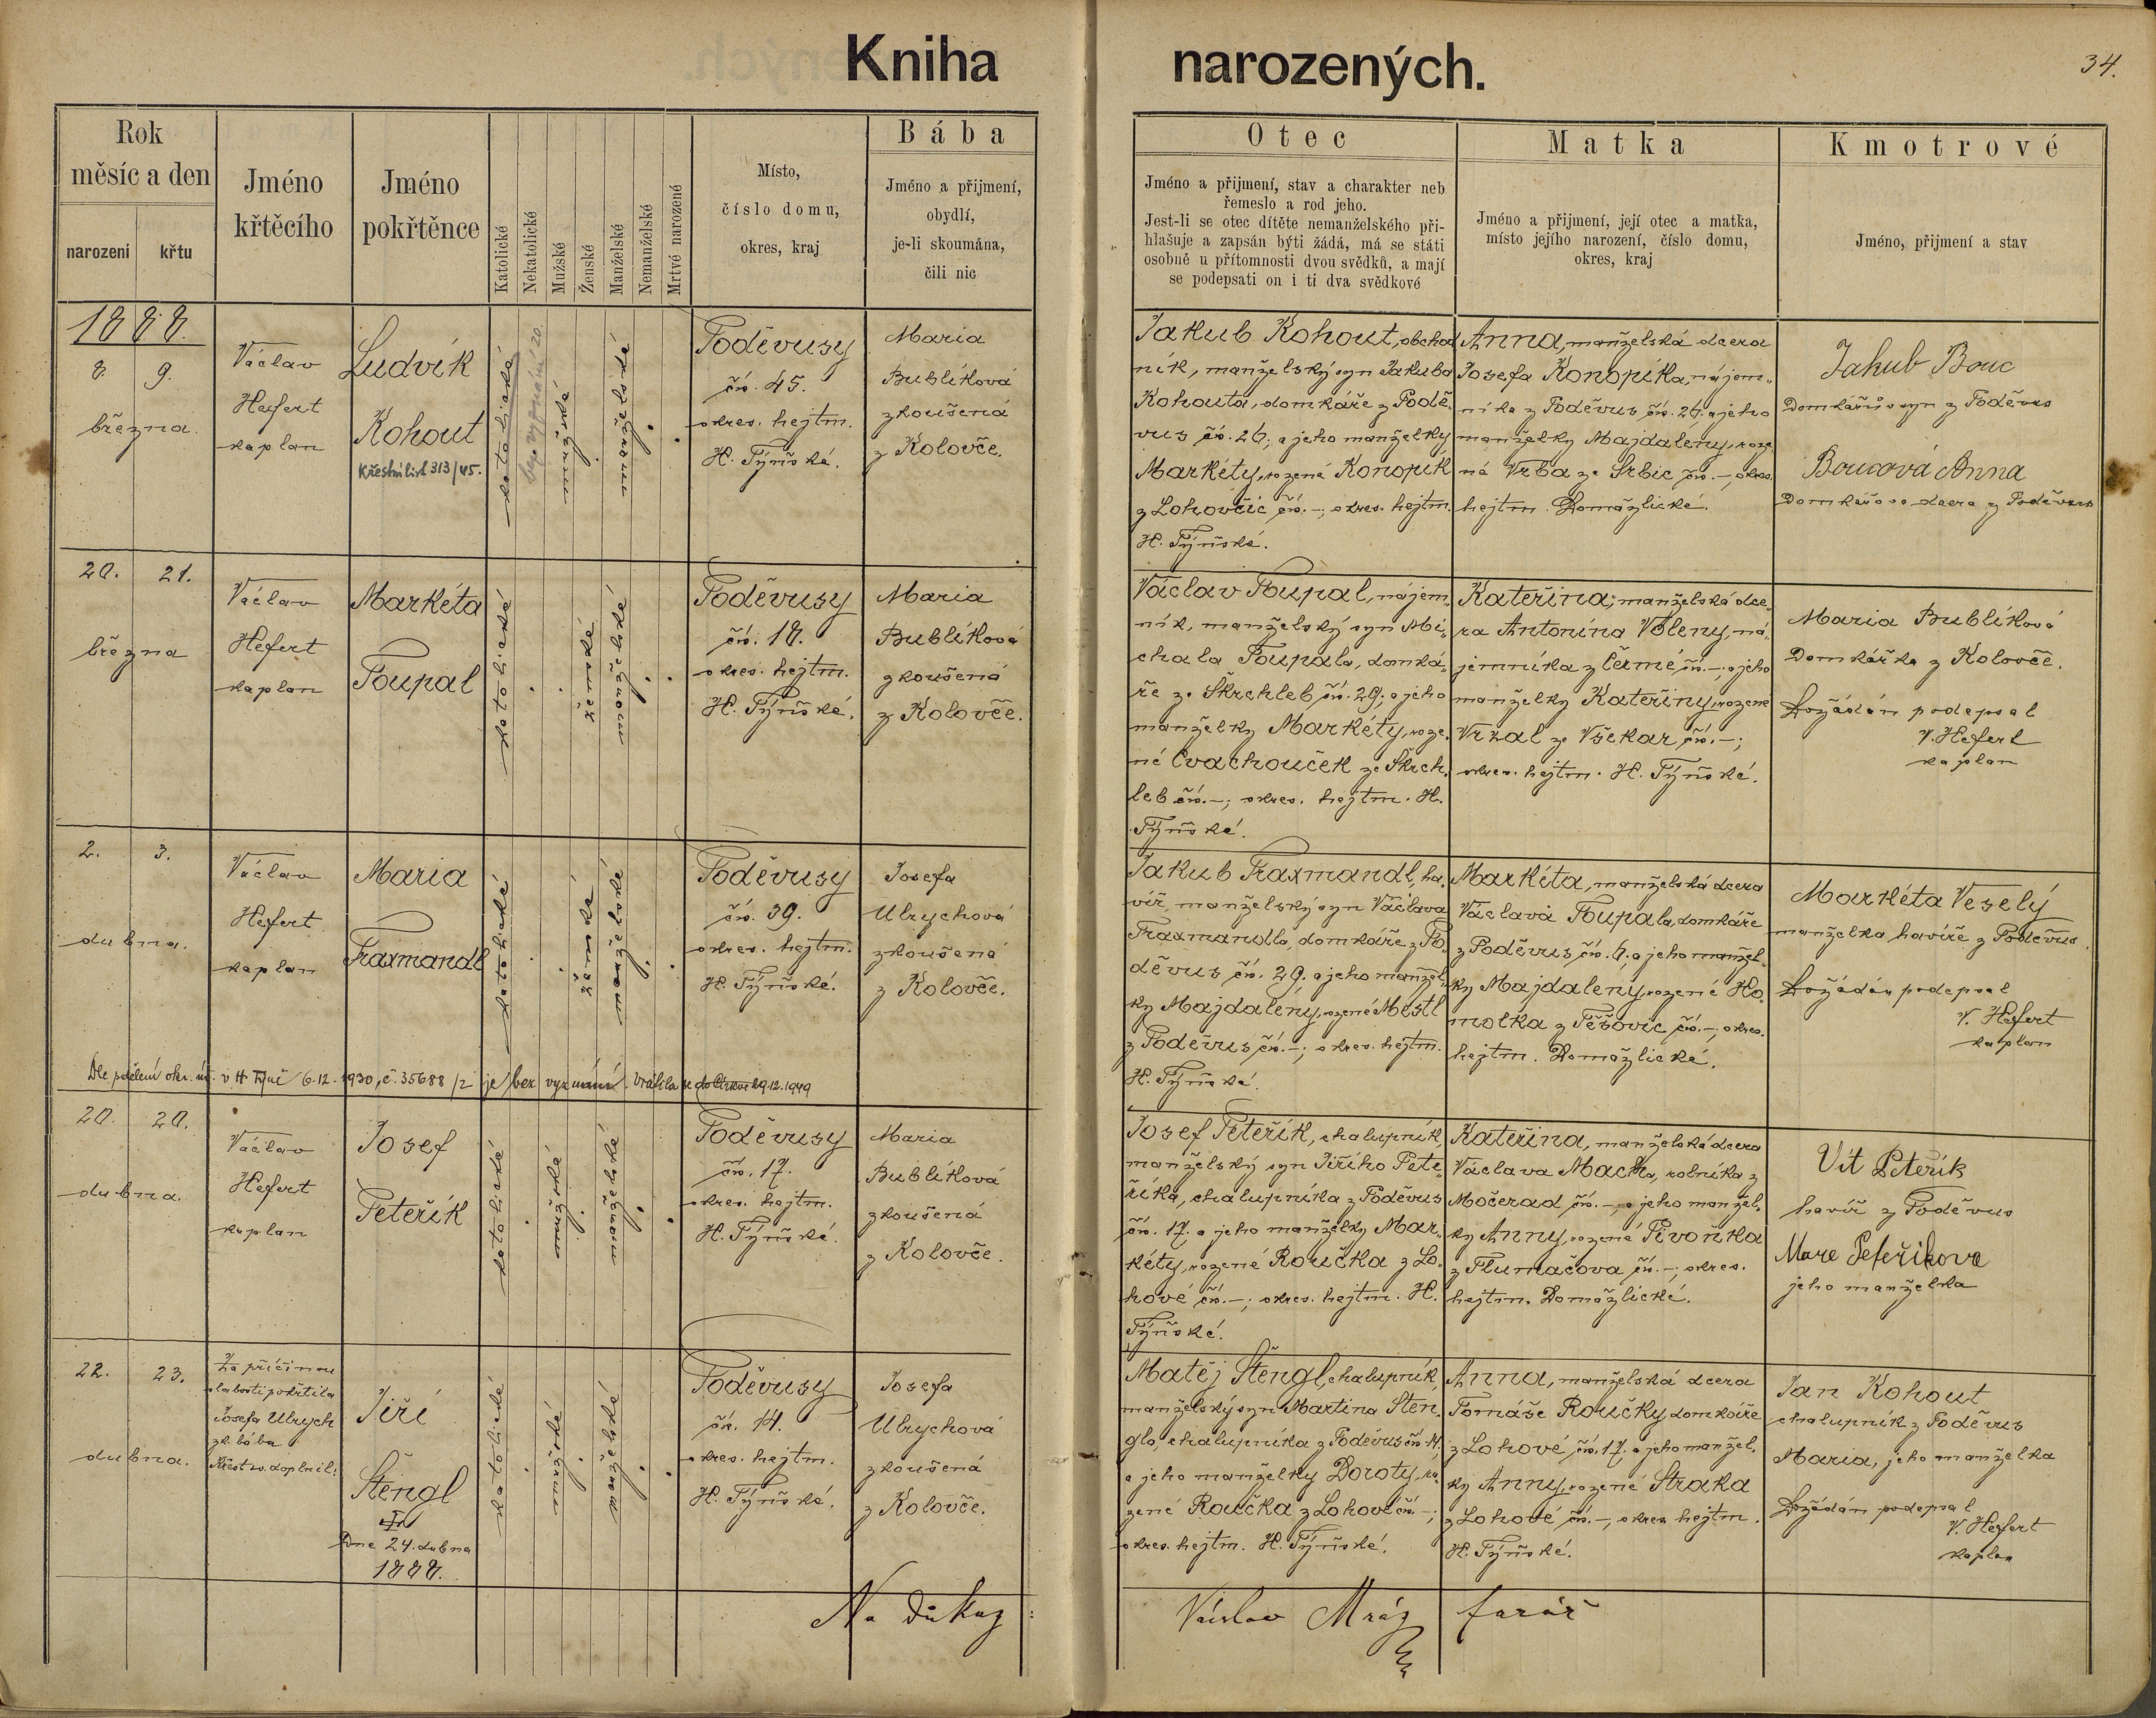 Kniha narozených.
34.
Rok
měsíc a den
narození
křtu
Jméno
křtěcího
Jméno
pokřtěnce
Katolické
Nekatolické
Mužské
Ženské
Manželské
Nemanželské
Mrtvě narozené
Místo,
číslo domu,
okres, kraj
Bába
Jméno a přijmení,
obydlí,
je-li skoumána,
čili nic
Otec
Jméno a přijmení, stav a charakter neb
řemeslo a rod jeho.
Jest-li se otec dítěte nemanželského při-
hlašuje a zapsán býti žádá, má se státi
osobně u přítomnosti dvou svědků, a mají
se podepsati on i ti dva svědkové
Matka
Jméno a přijmení, její otec a matka,
místo jejího narození, číslo domu,
okres, kraj
Kmotrové
Jméno, přijmení a stav
1888.
8. 9.
března.
Václav
Hefert
kaplan
Ludvík
Kohout
Křestní list 313/45.
katolické
bez vyznání 20.
mužské
manželské
Poděvusy
čís. 45.
okres. hejtm.
H. Týnské.
Maria
Bublíková
zkoušená
z Kolovče.
Jakub Kohout, obchod
ník, manželský syn Jakuba
Kohouta, domkáře z Podě-
vus čís. 26; a jeho manželky
Markéty, rozené Konopík
z Lohovčic čís. –; okres. hejtm.
H. Týnské.
Anna, manželská dcera
Josefa Konopíka, nájem-
níka z Poděvus čís. 26. a jeho
manželky Majdaleny, roze-
né Vrba ze Srbic čís. –, okres.
hejtm. Domažlické.
Jakub Bouc
Domkářův syn z Poděvus
Boucová Anna
Domkářova dcera z Poděvus
20. 21.
března
Václav
Hefert
kaplan
Markéta
Toupal
katolické
ženské
manželské
Poděvusy
čís. 18.
okres. hejtm.
H. Týnské.
Maria
Bublíková
zkoušená
z Kolovče.
Václav Toupal, nájem-
ník, manželský syn Mi-
chala Toupala, domká-
ře ze Škrchleb čís. 29; a jeho
manželky Markéty, roze-
né Cvachouček ze Škrch-
leb čís. –; okres. hejtm. H.
Týnské.
Kateřina, manželská dce-
ra Antonína Voleny, ná-
jemníka z Čermé čís. –; a jeho
manželky Kateřiny, rozené
Vrzal ze Všekar, čís. –;
okres. hejtm. H. Týnské.
Maria Bublíková
Domkářka z Kolovče.
Dožádán podepsal
V. Hefert
kaplan
2. 3.
dubna.
Václav
Hefert
kaplan
Maria
Fraxmandl
katolické
ženské
manželské
Poděvusy
čís. 39.
okres. hejtm.
H. Týnské.
Josefa
Ulrychová
zkoušená
z Kolovče.
Jakub Fraxmandl, ha-
víř, manželský syn Václava
Fraxmandla, domkáře z Po-
děvus čís. 29. a jeho manžel-
ky Majdaleny, rozené Mestl
z Poděvus čís. –; okres. hejtm.
H. Týnské.
Markéta, manželská dcera
Václava Toupala, domkáře
z Poděvus čís. 6; a jeho manžel-
ky Majdaleny, rozené Ho-
molka z Těšovic čís. –; okres.
hejtm. Domažlické.
Markéta Veselý
manželka havíře z Poděvus.
Dožádán podepsal
V. Hefert
kaplan
Dle sdělení okr. úř. v H. Týně 6.12.1930, č. 35688/2 je bez vyznání. Vrátila se do církve 29.12.1949
20. 20.
dubna.
Václav
Hefert
kaplan
Josef
Peteřík
katolické
mužské
manželské
Poděvusy
čís. 17.
okres. hejtm.
H. Týnské.
Maria
Bublíková
zkoušená
z Kolovče.
Josef Peteřík, chalupník,
manželský syn Jiřího Pete-
říka, chalupníka z Poděvus
čís. 17. a jeho manželky Mar-
kéty, rozené Roučka z Lo-
hové čís. –; okres. hejtm. H.
Týnské.
Kateřina, manželská dcera
Václava Macha, rolníka z
Močerad čís. –, a jeho manžel-
ky Anny, rozené Pivoňka
z Tlumačova čís. –; okres.
hejtm. Domažlické.
Vít Peteřík
havíř z Poděvus
Mare Peteříkova
jeho manželka
22. 23.
dubna.
Za příčinou
slabosti pokřtila
Josefa Ulrych
zk. bába
Křest sv. doplnil:
Jiří
Štengl
Dne 24. dubna
1888.
katolické
mužské
manželské
Poděvusy
čís. 14.
okres. hejtm.
H. Týnské.
Josefa
Ulrychová
zkoušená
z Kolovče.
Matěj Štengl, chalupník,
manželský syn Martina Šten-
gla, chalupníka z Poděvus čís. 14.
a jeho manželky Doroty, ro-
zené Roučka z Lohové čís. –;
okres. hejtm. H. Týnské.
Anna, manželská dcera
Tomáše Roučky, domkáře
z Lohové čís. 17. a jeho manžel-
ky Anny, rozené Straka
z Lohové čís. –, okres. hejtm.
H. Týnské.
Jan Kohout
chalupník z Poděvus
Maria, jeho manželka
Dožádán podepsal
V. Hefert
kaplan
Na důkaz:
Václav Mráz farář